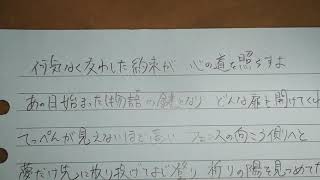 何気なく交わした約束が 心の道を照らすよ
あの日始まった物語の鍵となり どんな扉も開けてく
てっぺんが見えないほど高い フェンスの向こう側へと
夢だけ先に放り投げてよじ登り 祈りの陽を見つめてた